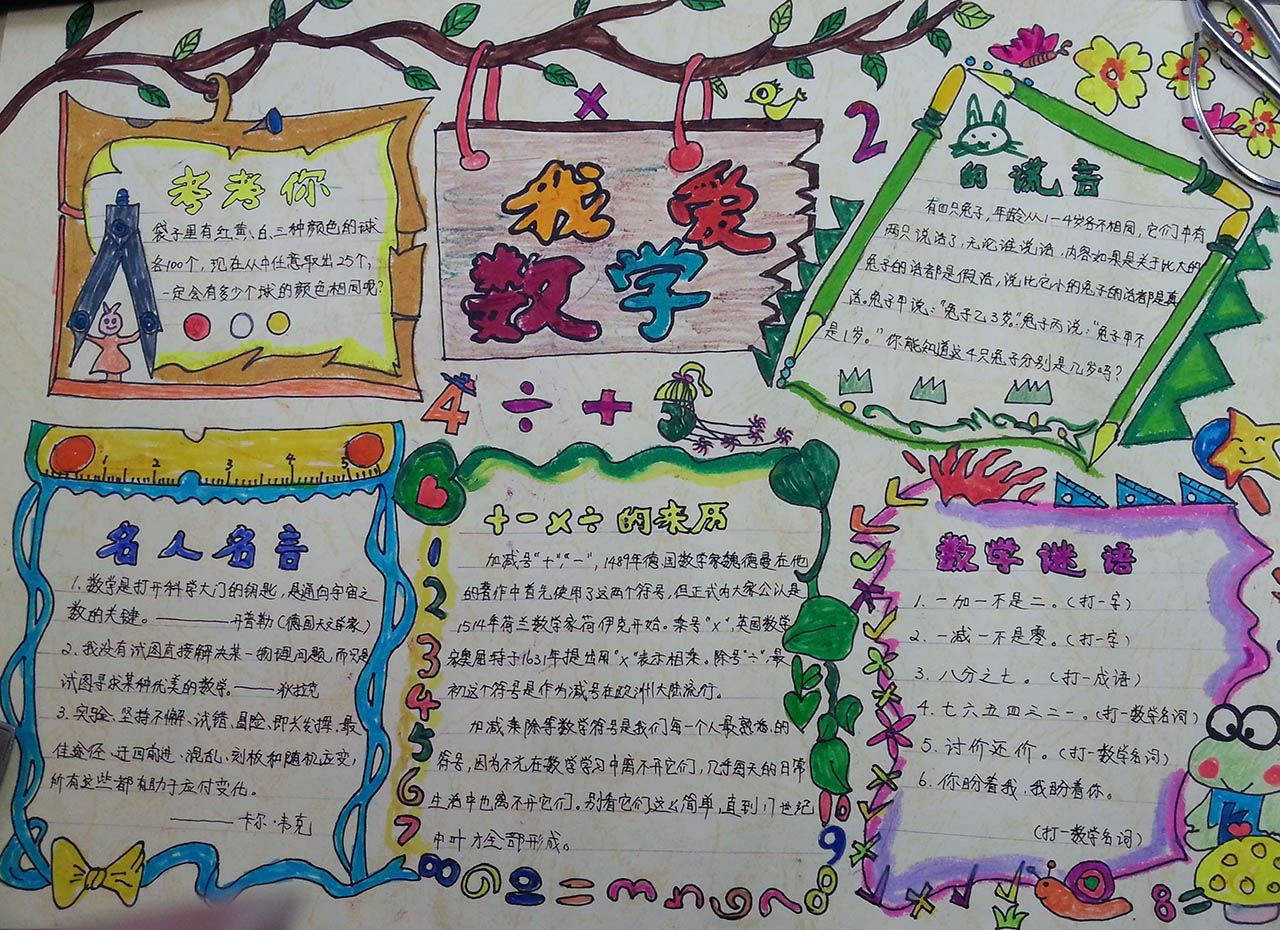 我爱
数学
考考你
袋子里有红、黄、白、三种颜色的球
各100个，现在从中任意取出25个，
一定会有多少个球的颜色相同呢？
的谎言
有四只兔子，年龄从1—4岁各不相同，它们中有
两只说话了，无论谁说话，内容如果是关于比大的
兔子的话都是假话，说比它小的兔子的话都是真
话。兔子甲说："兔子乙3岁。"兔子丙说："兔子甲不
是1岁。"你能知道这4只兔子分别是几岁吗？
2
×
4 ÷ +
1 2 3 4 5
名人名言
1. 数学是打开科学大门的钥匙，是通向宇宙之
数的关键。————开普勒（德国天文学家）
2. 我没有试图直接解决某一物理问题，而只是
试图寻求某种优美的数学。——狄拉克
3. 实验、坚持不懈、试错、冒险、即兴发挥、最
佳途径、迂回前进、混乱、刻板和随机应变，
所有这些都有助于应付变化。
————卡尔·韦克
+-×÷的来历
加减号"+"，"-"，1489年德国数学家魏德曼在他
的著作中首先使用了这两个符号，但正式为大家公认是
1514年荷兰数学家荷伊克开始。乘号"×"，英国数学
家奥屈特于1631年提出用"×"表示相乘。除号"÷"，最
初这个符号是作为减号在欧洲大陆流行。
加减乘除等数学符号是我们每一个人最熟悉的
符号，因为不光在数学学习中离不开它们，几乎每天的日常
生活中也离不开它们。别看它们这么简单，直到17世纪
中叶才全部形成。
1
2
3
4
5
6
7
10
9
8
数学谜语
1. 一加一不是二。（打一字）
2. 一减一不是零。（打一字）
3. 八分之七。（打一成语）
4. 七六五四三二一。（打一数学名词）
5. 讨价还价。（打一数学名词）
6. 你盼着我，我盼着你。
（打一数学名词）
8=